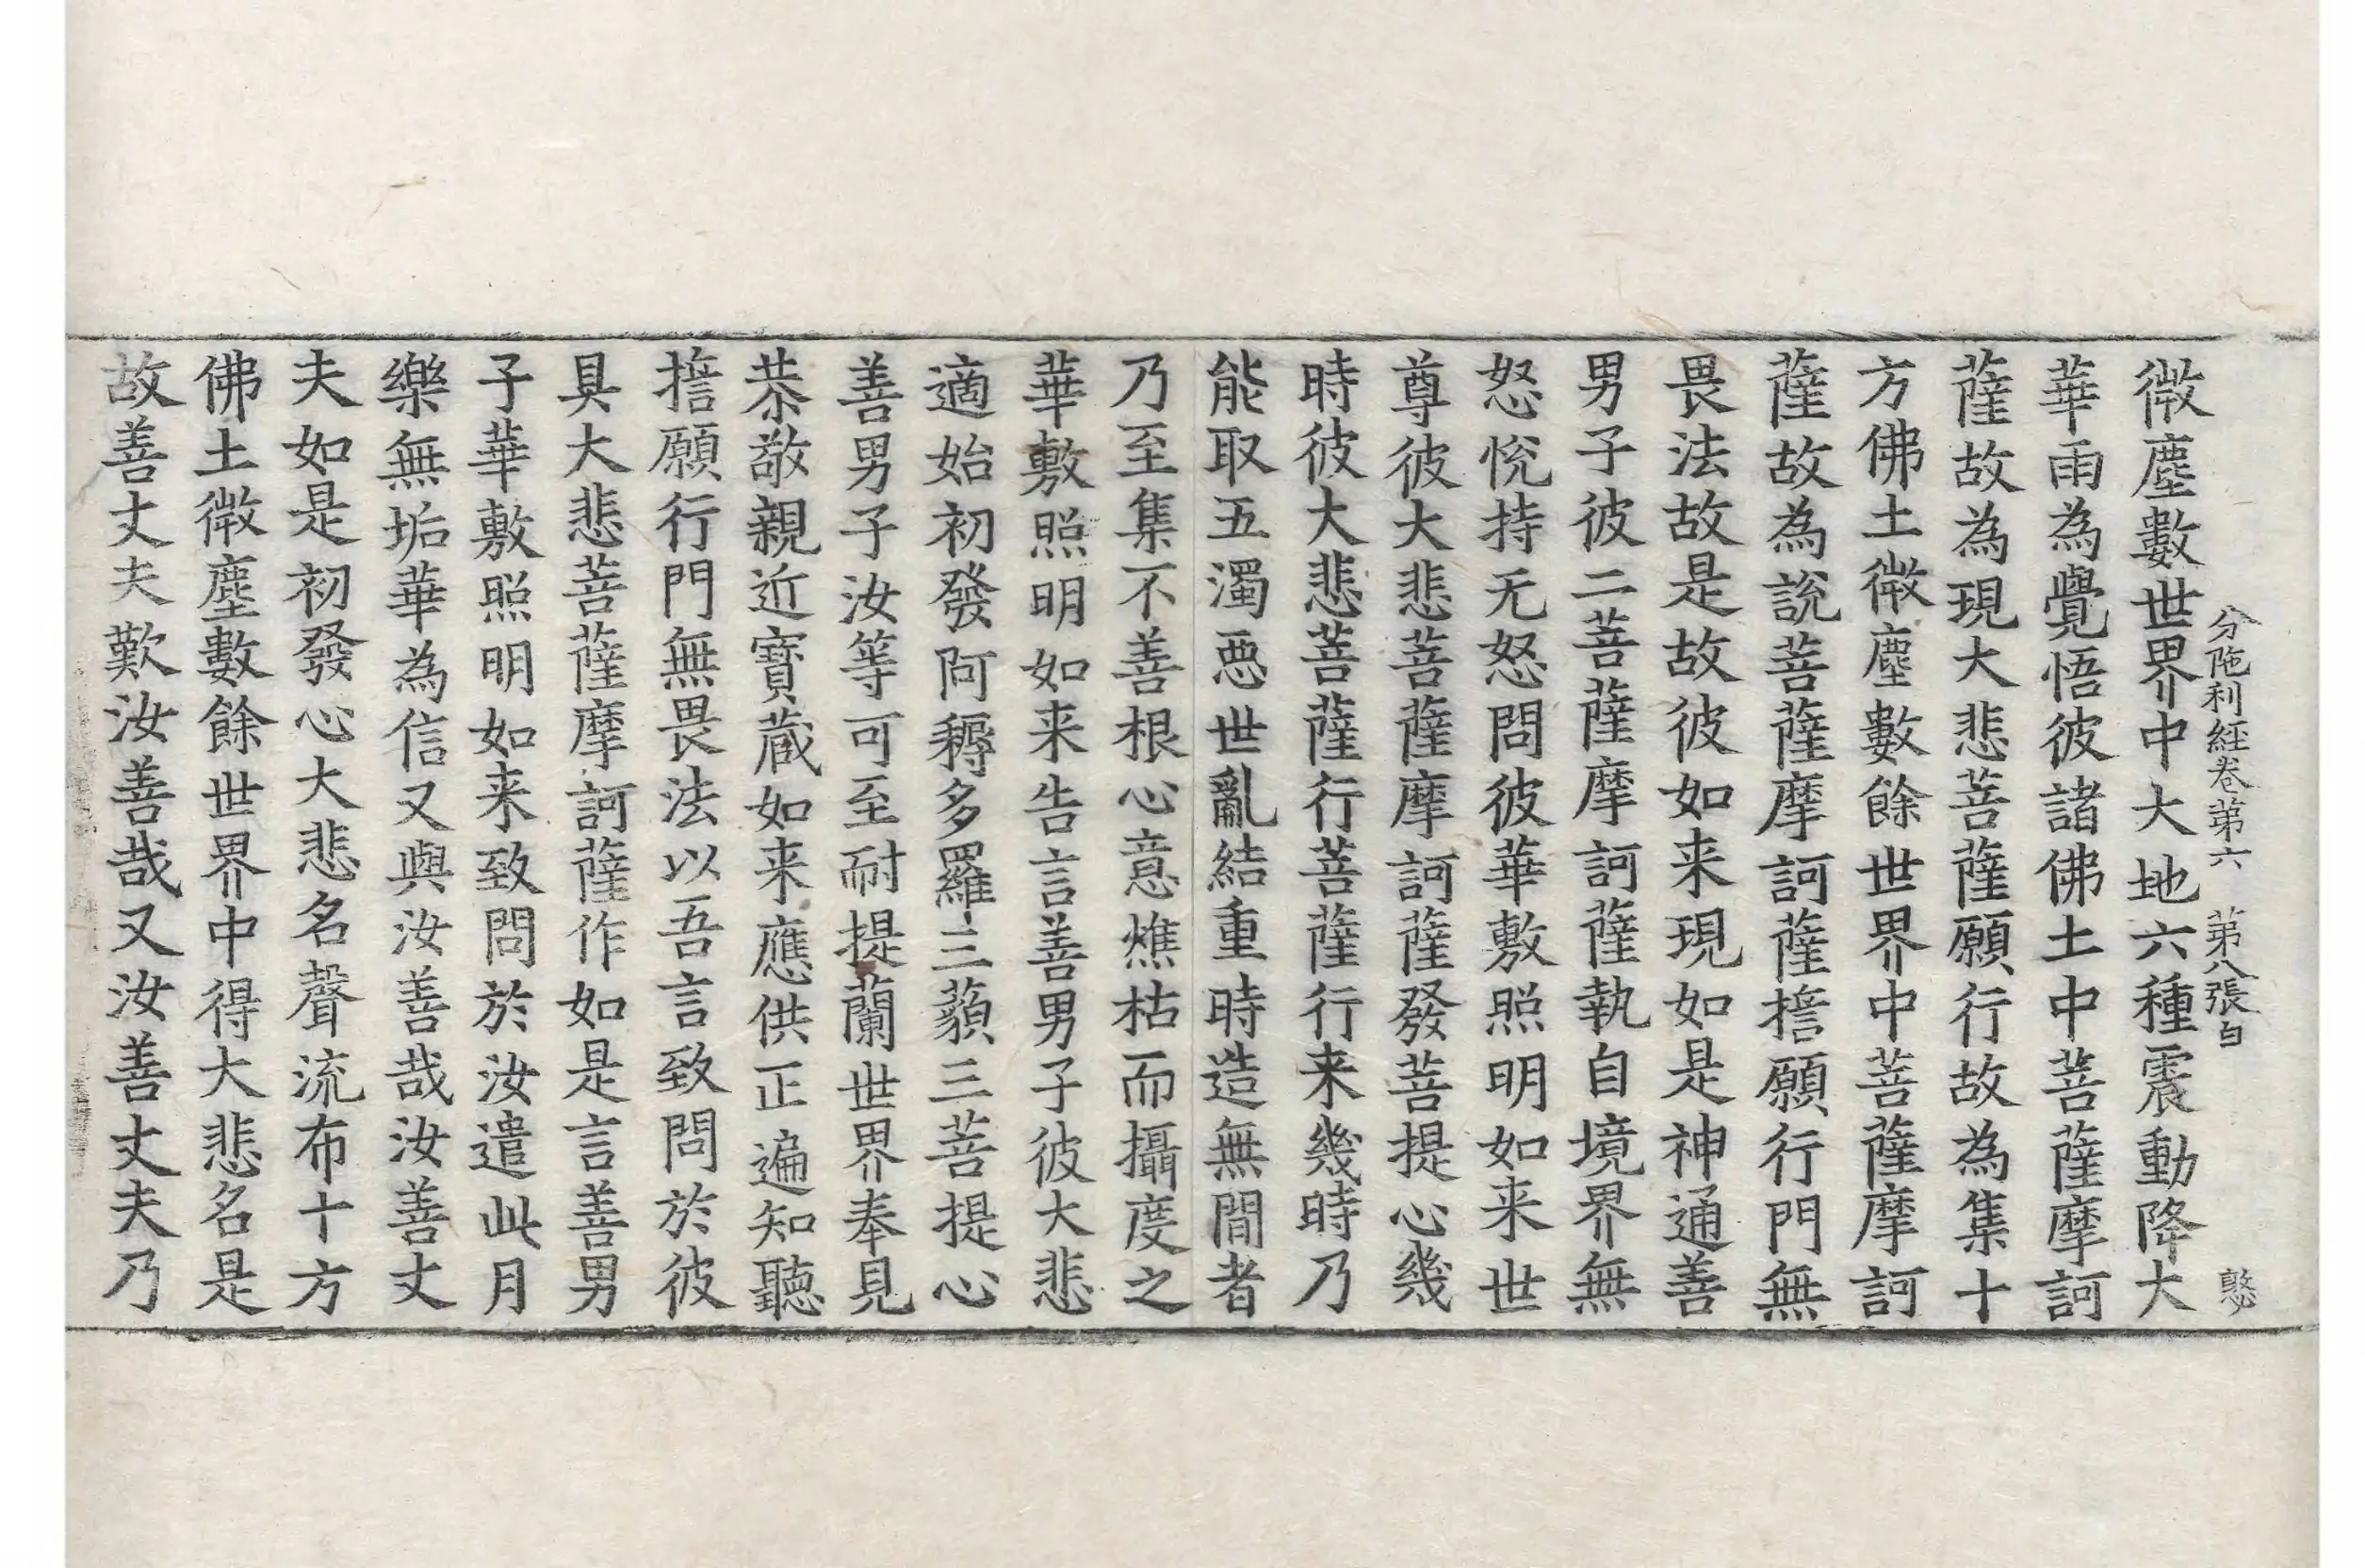 分陁利經卷第六 第八張 白 慜
微塵數世界中大地六種震動降大
華雨為覺悟彼諸佛土中菩薩摩訶
薩故為現大悲菩薩願行故為集十
方佛土微塵數餘世界中菩薩摩訶
薩故為說菩薩摩訶薩擔願行門無
畏法故是故彼如来現如是神通善
男子彼二菩薩摩訶薩執自境界無
怒恱持无怒問彼華敷照明如来世
尊彼大悲菩薩摩訶薩發菩提心幾
時彼大悲菩薩行菩薩行来幾時乃
能取五濁惡世亂結重時造無間者
乃至集不善根心意燋枯而攝度之
華敷照明如来告言善男子彼大悲
適始初發阿耨多羅三藐三菩提心
善男子汝等可至耐提蘭世界奉見
恭敬親近寶蔵如来應供正遍知聽
擔願行門無畏法以吾言致問於彼
具大悲菩薩摩訶薩作如是言善男
子華敷照明如来致問於汝遣此月
樂無垢華為信又與汝善哉汝善丈
夫如是初發心大悲名聲流布十方
佛土微塵數餘世界中得大悲名是
故善丈夫歎汝善哉又汝善丈夫乃